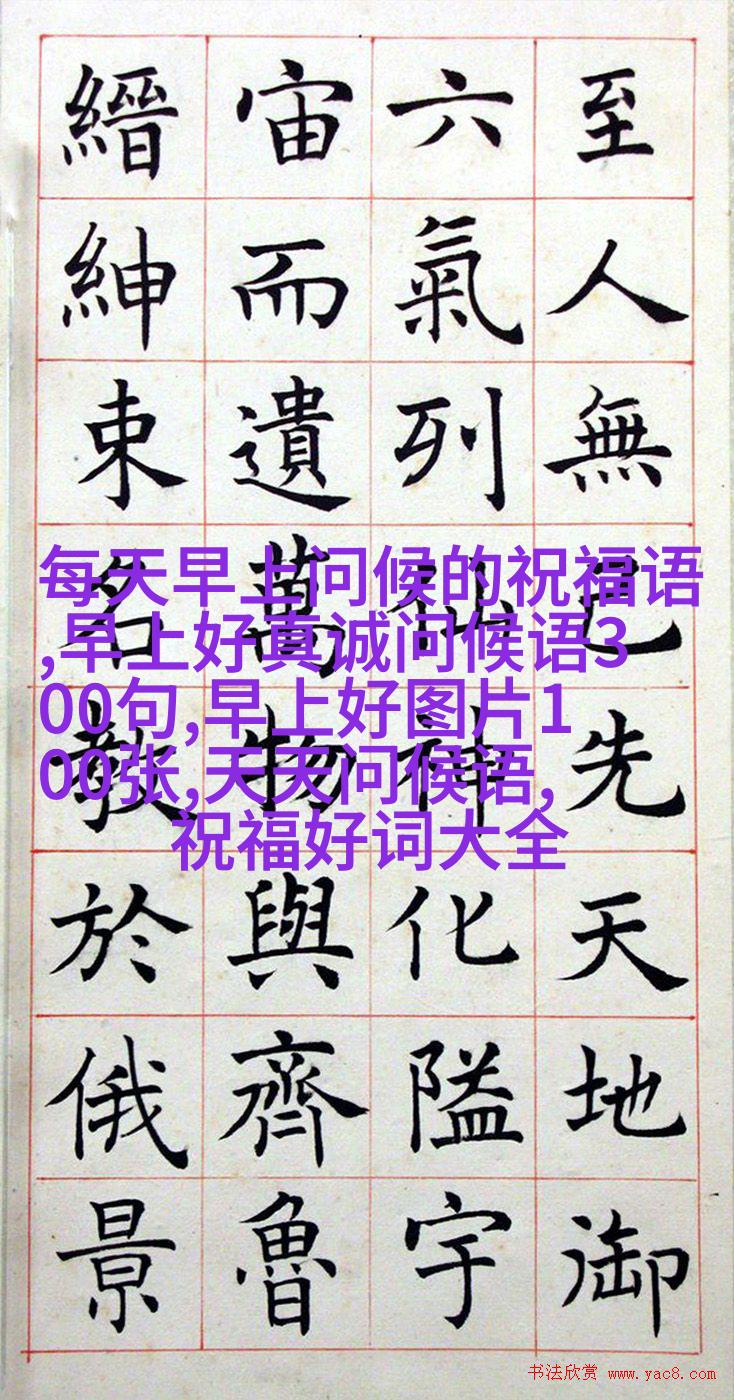 至人無己先天地御
六氣列仙神化隘宇
宙而遺萬物與齊魯
縉紳束名教於俄景
每天早上问候的祝福语
,早上好真诚问候语3
00句,早上好图片1
00张,天天问候语,
祝福好词大全
书法欣赏 www.yac8.com